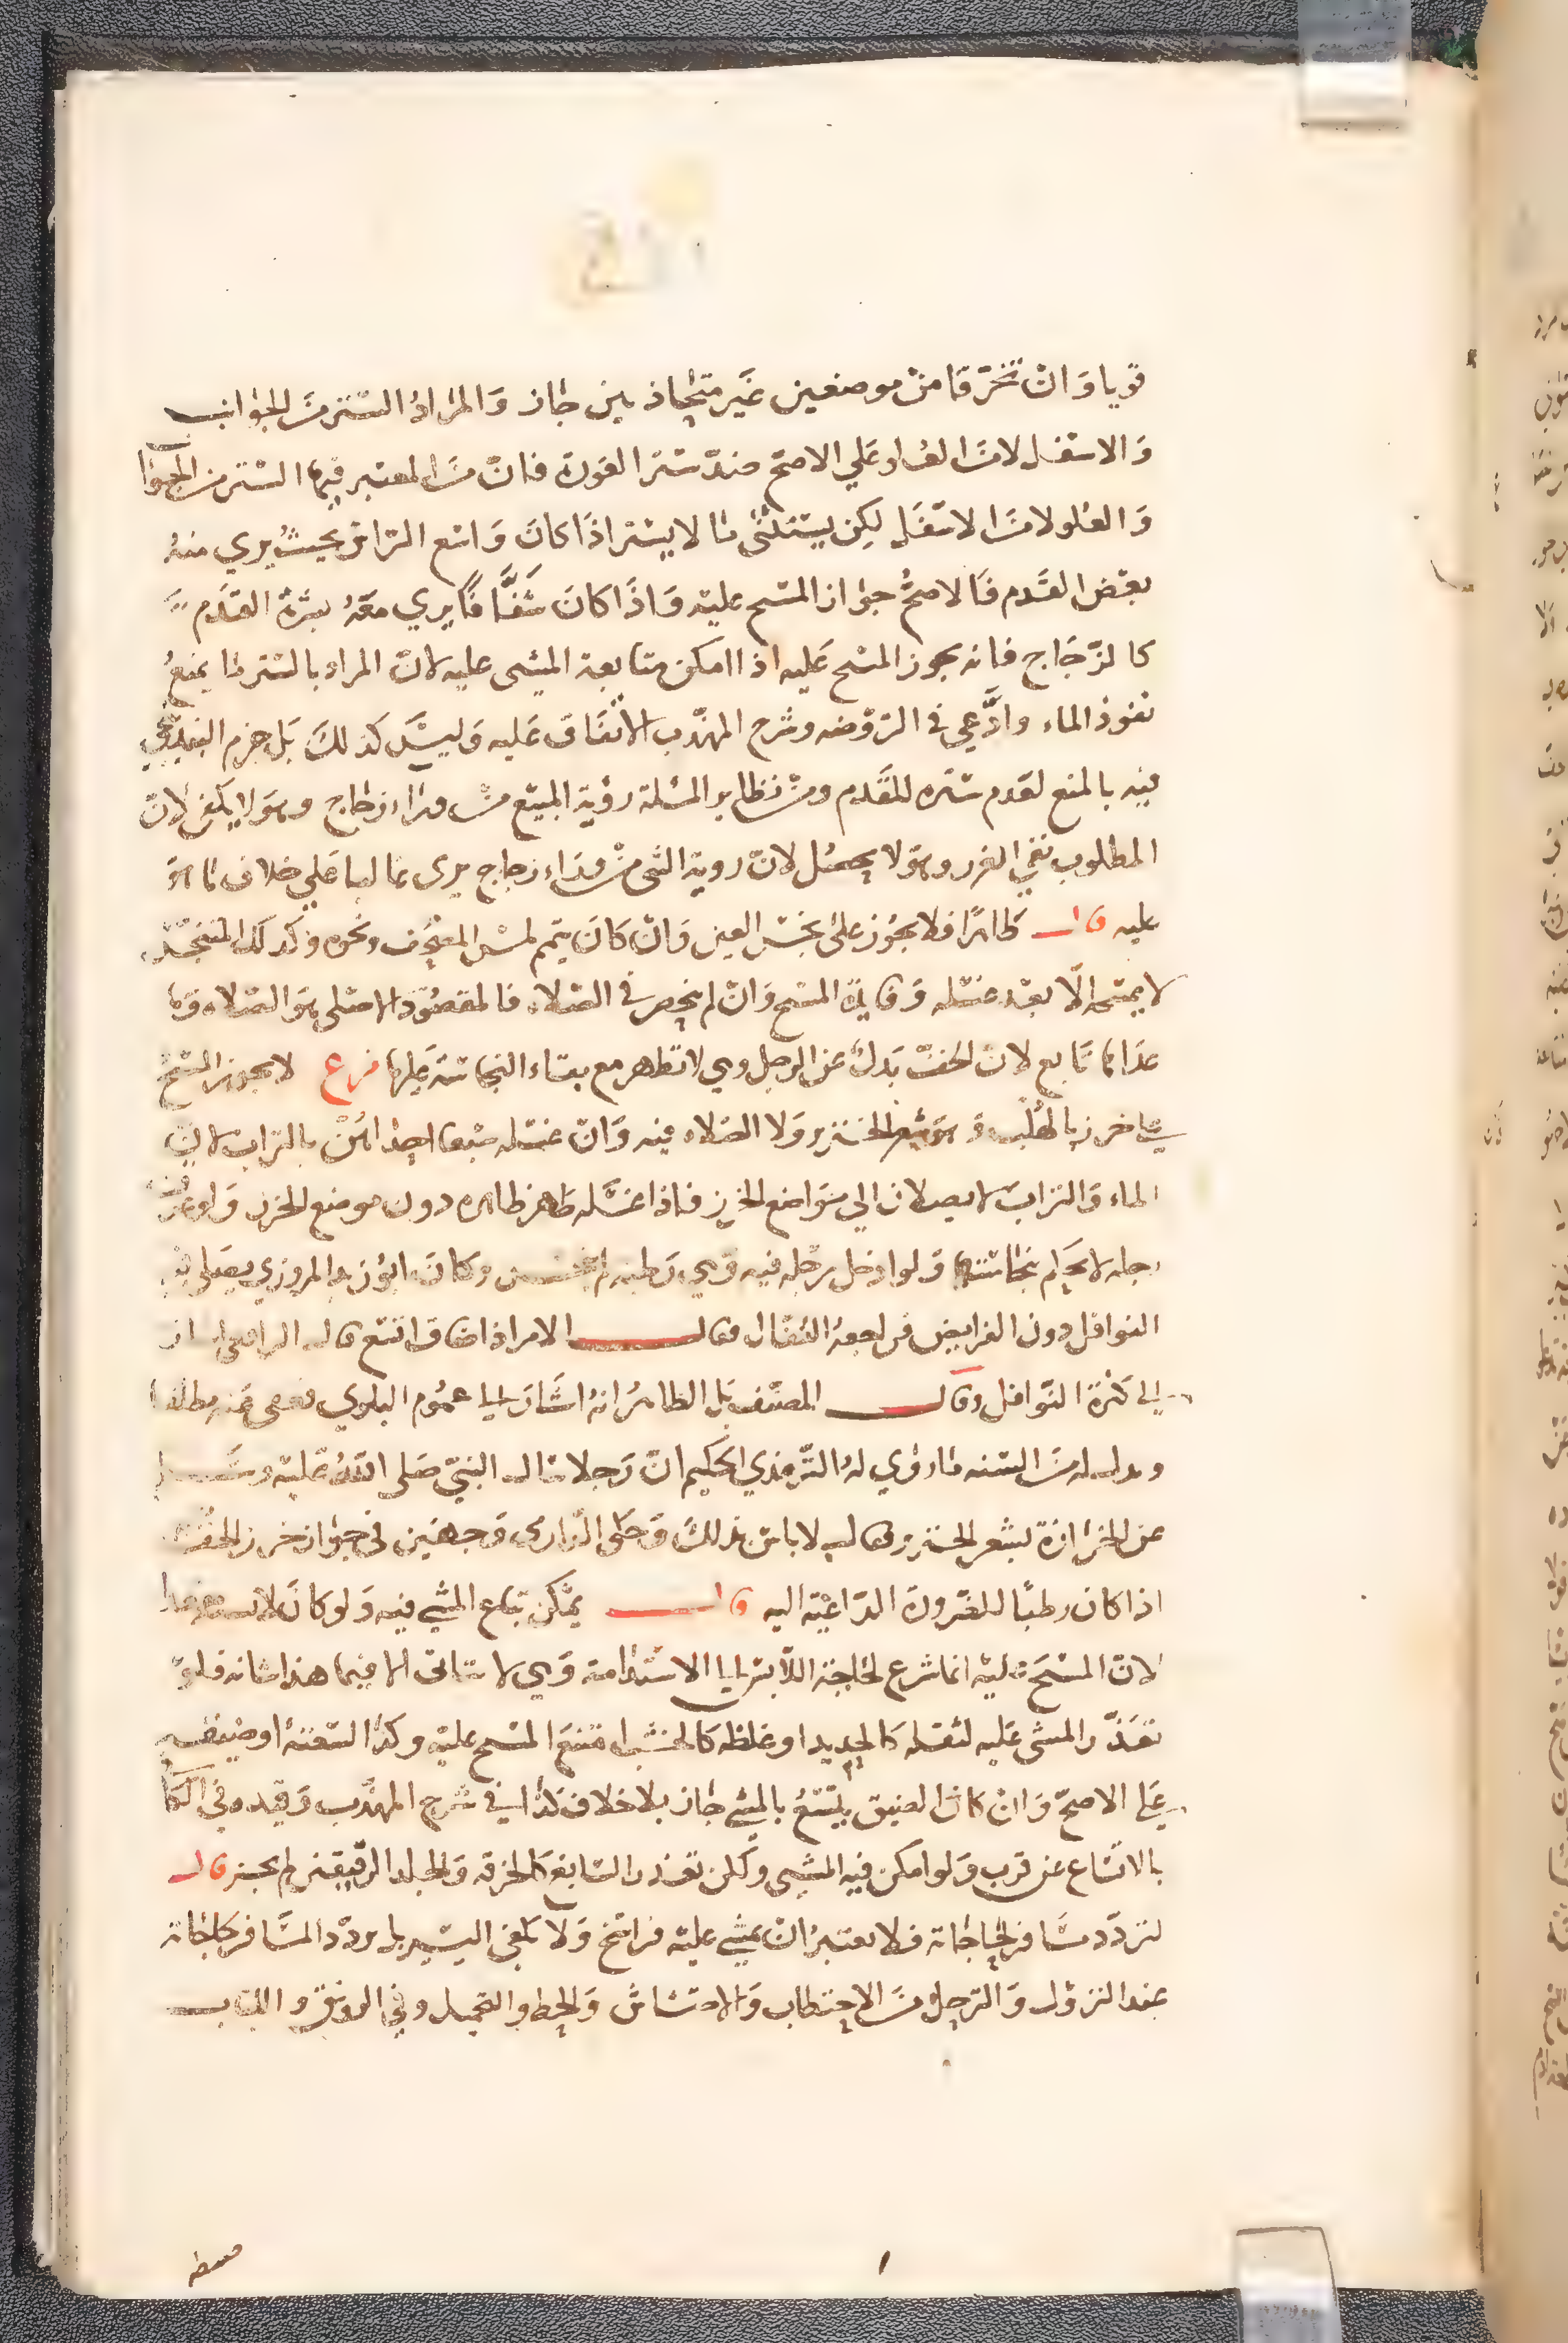 قويا وان تخرقا من موضعين غير متحاذيين جاز والمراد الستر من الجوانب
والاسفل لا من العلو علي الاصح ضد ستر العورة فان المعتبر فيها الستر من الجوانب
والعلو لا من الاسفل لكن يستثنى ما لا يستر اذا كان واسع الراس بحيث يري منه
بعض القدم فالاصح جواز المسح عليه واذا كان شفافا يري معه بشرة القدم
كالزجاج فانه يجوز المسح عليه اذا امكن متابعة المشى عليه لان المراد بالستر ما يمنع
نفوذ الماء وادعي في الروضه وشرح المهذب الاتفاق عليه وليس كذلك بل جزم البندنيجي
فيه بالمنع لعدم ستره للقدم ومن نظاير المسئلة رؤية المبيع من وراء زجاج وهو لا يكفى لان
المطلوب نفي الغرر وهو لا يحصل لان روية الشى من وراء زجاج يرى غالبا علي خلاف ما هو
عليه قال طاهرا فلا يجوز على نجس العين وان كان يتم لمس المصحف ونحوه وكذلك المتنجس
لا يمسحه الا بعد غسله وفايدة المسح وان لم ينحصر في الصلاه فالمقصود الاصلى هو الصلاه وما
عداها تابع لان الخف بدل عن الرجل وهي لا تطهر مع بقاء النجاسة عليها فرع لا يجوز المسح
علي خف خرز بالهلب وهو شعر الخنزير ولا الصلاه فيه وان غسله سبعا احداهن بالتراب لان
الماء والتراب لا يصلان الي مواضع الخرز فاذا غسله طهر ظاهره دون موضع الخرز ولو عرقت
رجله لا يحكم بنجاستها ولو ادخل رجله فيه وهي رطبه لم ينجس وكان ابو زيد المروزي يصلي فيه
النوافل دون الفرايض فراجعه القفال فقال الامر اذا ضاق اتسع قال الرافعي اشار
الي كثرة النوافل وقال المصنف بل الظاهر انه اشار الي عموم البلوي فعفى عنه مطلقا
ودليله من السنه ما روي له الترمذي الحكيم ان رجلا سال النبي صلى الله عليه وسلم
عن الخرازة بشعر الخنزير وقال لا باس بذلك وحكى الدارمي وجهين في جواز خرز الخف
اذا كان رطبا للضرورة الداعية اليه قال يمكن تباع المشي فيه ولو كان لابسه مقعدا
لان المسح عليه انما شرع لحاجة اللابس الي الاستدامة وهي لا تتاتى الا فيما هذا شانه فلو
تعذر المشى عليه لثقله كالحديد او غلظه كالخشب امتنع المسح عليه وكذا السعته او ضيقه
علي الاصح وان كان الضيق يتسع بالمشي جاز بلا خلاف كذا في شرح المهذب وقيده في الكافي
بالاتساع عن قرب ولو امكن فيه المشي ولكن تعذر السابغ كالخرقه والجلد الرقيق لم يجز قال
لتردد مسافر لحاجاته فلا يعتبر ان يمشي عليه فراسخ ولا يكفي اليسير بل تردد المسافر لحاجاته
عند النزول والترحل من الاحتطاب والاحتشاش والحط والتحميل وفي الرونق واللباب